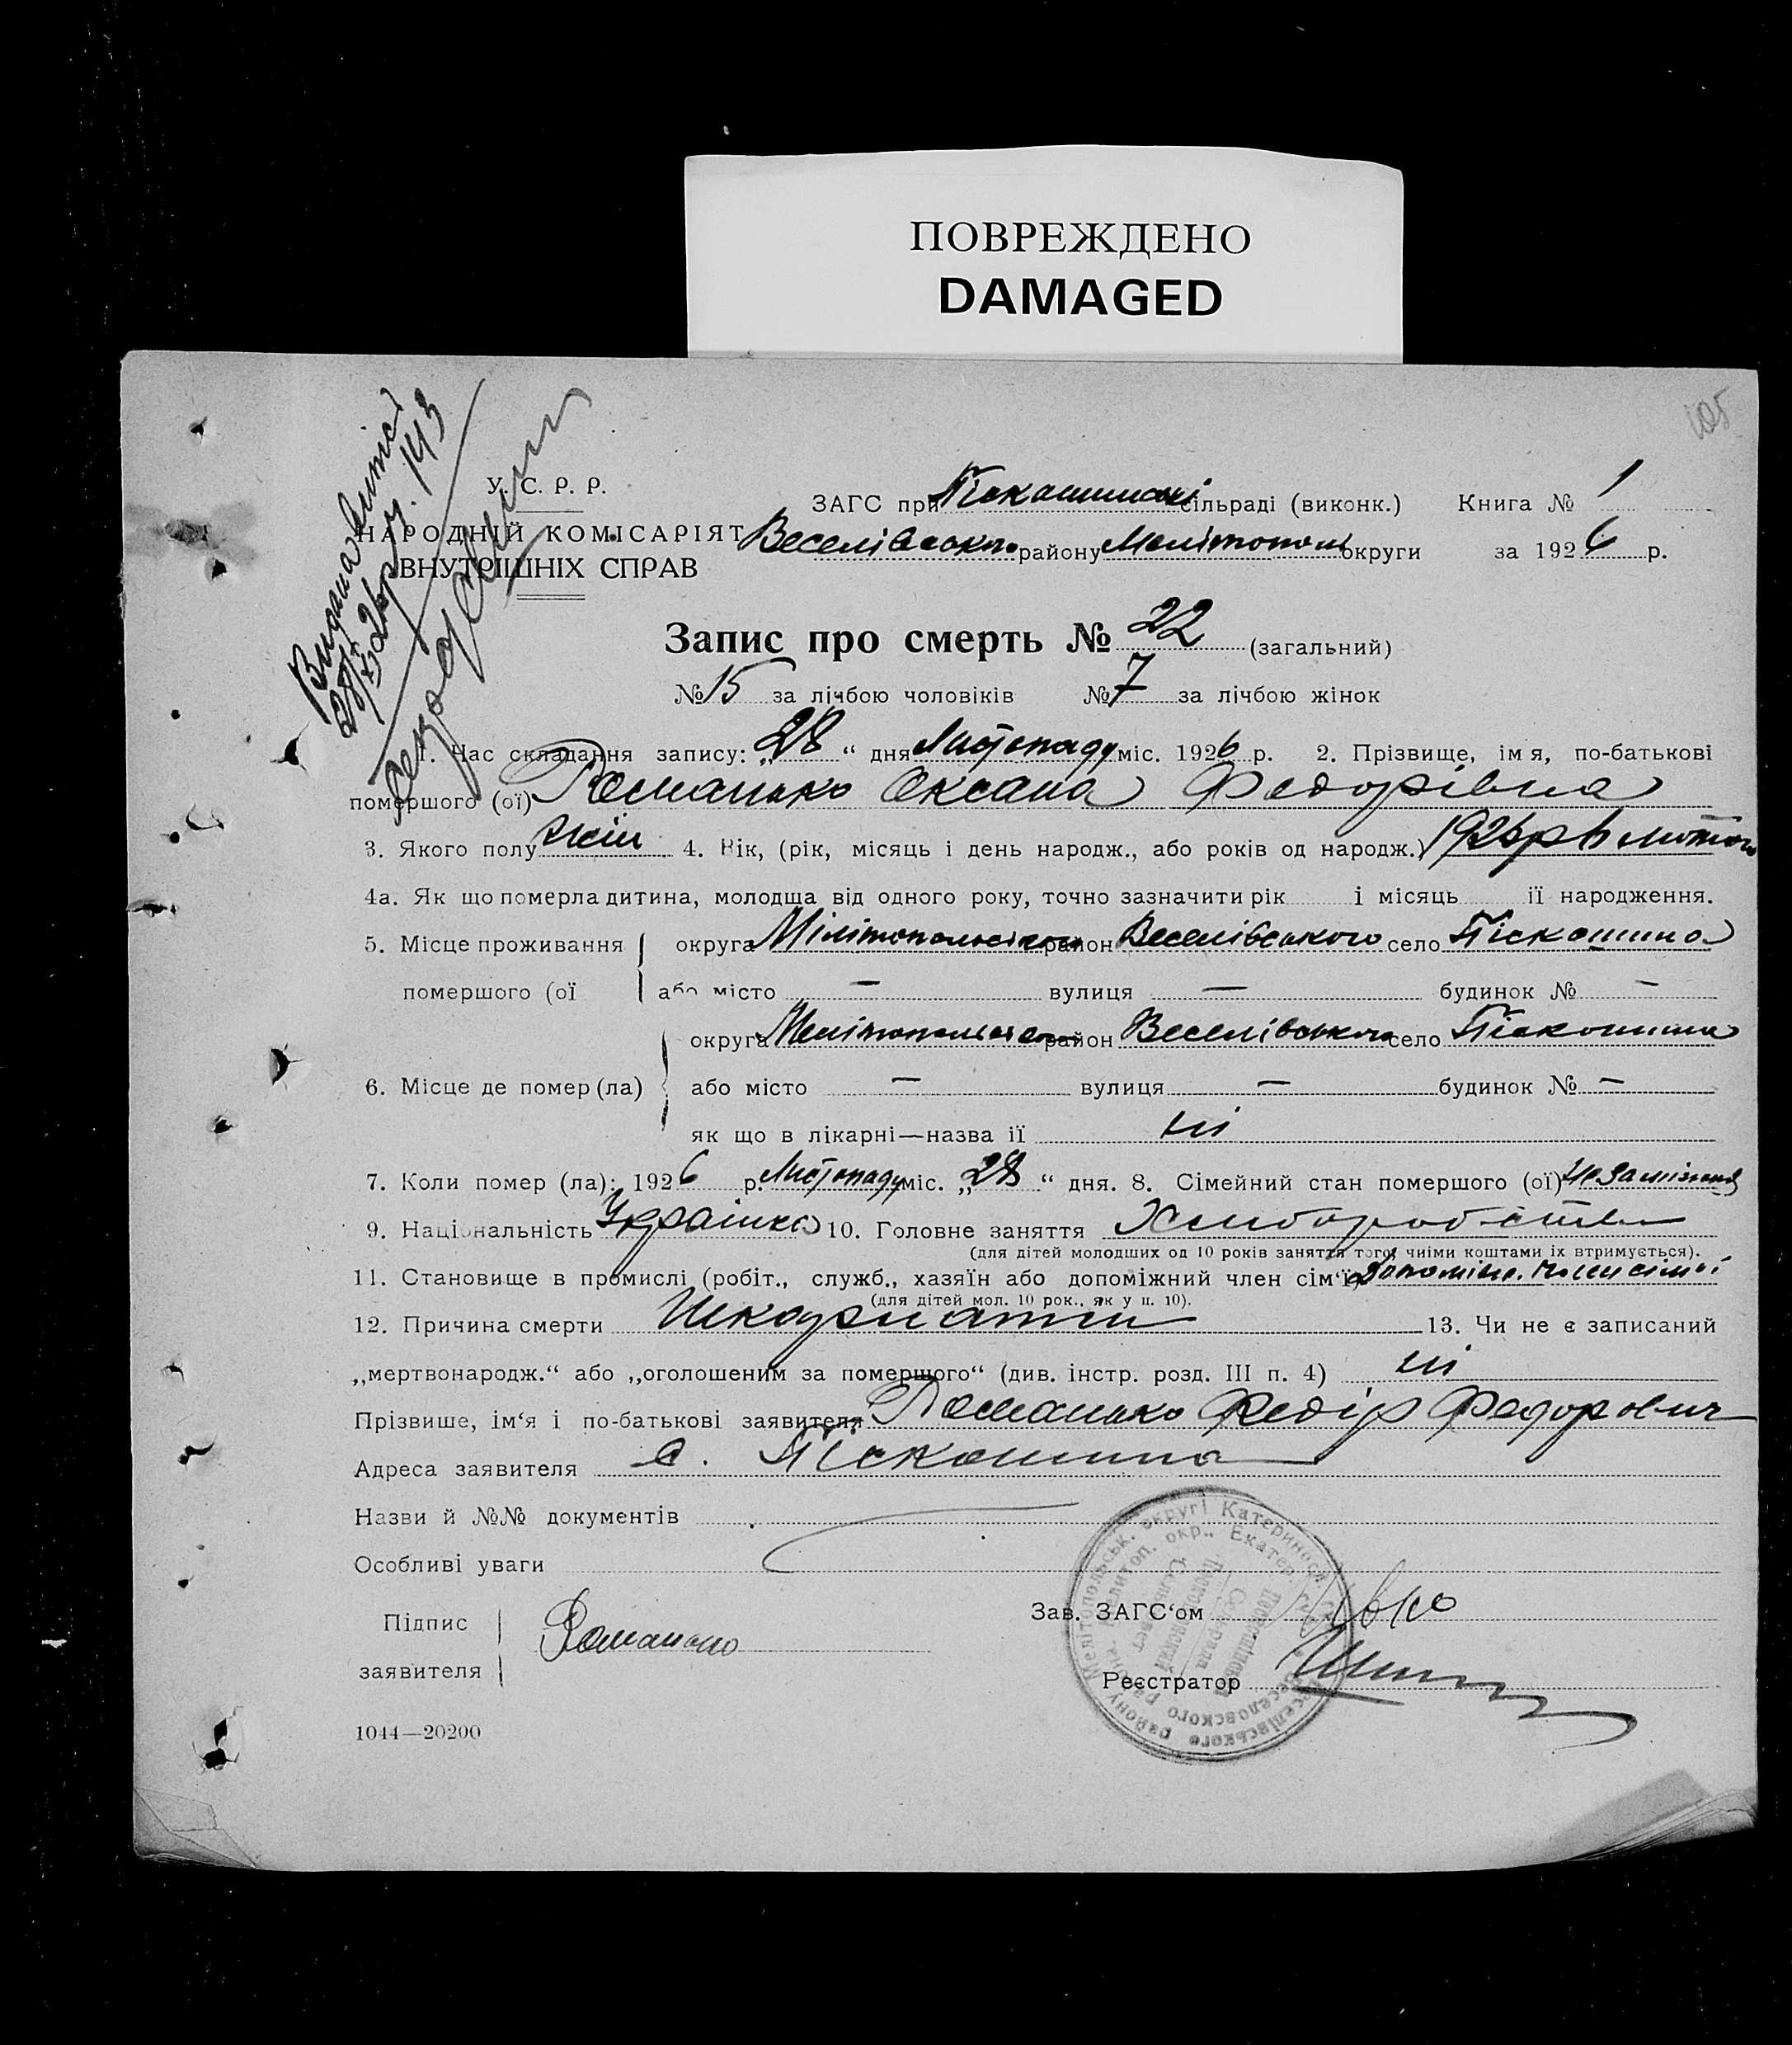 ПОВРЕЖДЕНО
DAMAGED
105
Видана випис
28/XI 26 р. 143
У. С. Р. Р.
НАРОДНІЙ КОМІСАРІЯТ
ВНУТРІШНІХ СПРАВ
ЗАГС при Піскошинські сільраді (виконк.) Книга № 1
Веселівсько району Мелітополь округи за 1926 р.
Запис про смерть № 22 (загальний)
№ 15 за лічбою чоловіків № 7 за лічбою жінок
1. Час складання запису: „28“ дня Листопаду міс. 1926 р. 2. Прізвище, ім я, по-батькові
помершого (ої) Романько Оксана Федорівна
3. Якого полу жін 4. Вік, (рік, місяць і день народж., або років од народж.) 1926 р 6 лютого
4а. Як що померла дитина, молодща від одного року, точно зазначити рік і місяць її народження.
5. Місце проживання округа Мілітопольського район Веселівського село Піскошино
помершого (ої або місто — вулиця — будинок № —
округа Мелітопольського район Веселівського село Піскошина
6. Місце де помер (ла) або місто — вулиця — будинок № —
як що в лікарні—назва її ні
7. Коли помер (ла): 1926 р. Листопаду міс. „28“ дня. 8. Сімейний стан помершого (ої) не заміжня
9. Національність Українка 10. Головне заняття Хлиборобство
(для дітей молодших од 10 років заняття того, чиїми коштами їх втримується).
11. Становище в промислі (робіт., служб., хазяїн або допоміжний член сім'ї) Допоміжн. член сімьі
(для дітей мол. 10 рок., як у п. 10).
12. Причина смерти Шкарлатин 13. Чи не є записаний
„мертвонародж.“ або „оголошеним за помершого“ (див. інстр. розд. III п. 4) ні
Прізвише, ім'я і по-батькові заявителя Романько Федір Федорович
Адреса заявителя с. Піскошина
Назви й №№ документів
Особливі уваги
Підпис
заявителя Романько
Зав. ЗАГС'ом
Реєстратор
1044—20200